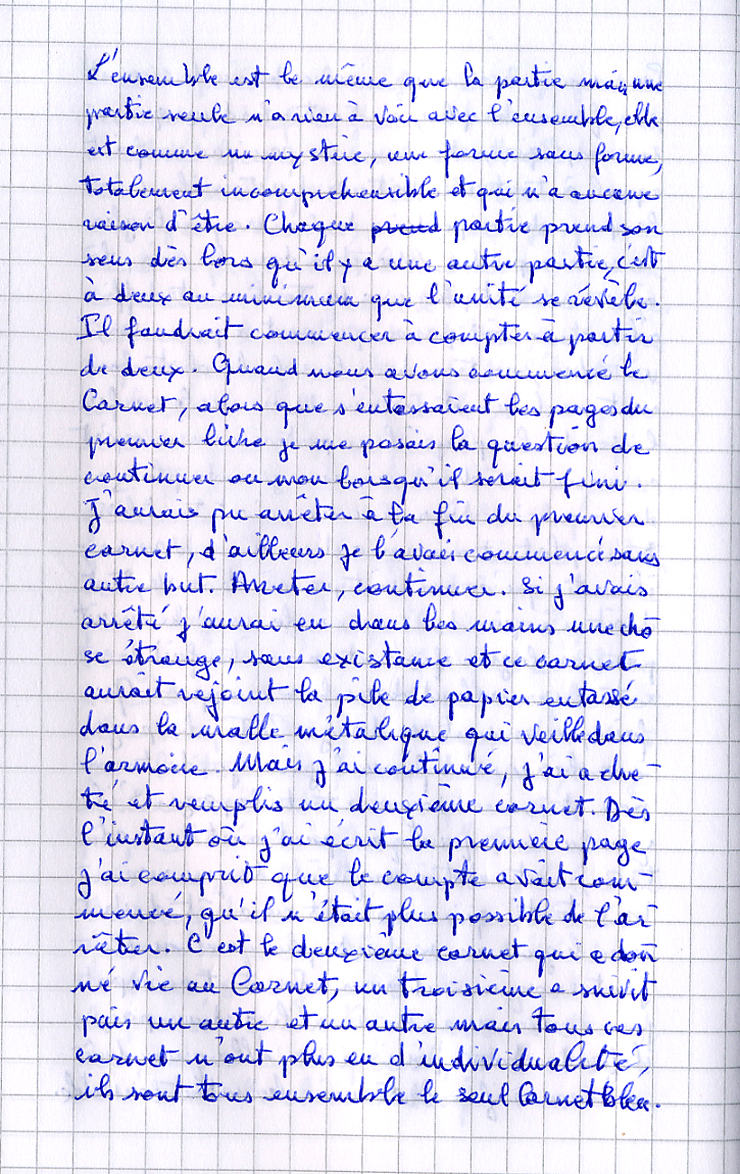 L'ensemble est le même que la partie mais une
partie seule n'a rien à voir avec l'ensemble, elle
est comme un mystère, une forme sans forme,
totalement incompréhensible et qui n'a aucune
raison d'être. Chaque prend partie prend son
sens dès lors qu'il y a une autre partie, c'est
à deux au minimum que l'unité se révèle.
Il faudrait commencer à compter à partir
de deux. Quand nous avons commencé le
Carnet, alors que s'entassaient les pages du
premier livre je me posais la question de
continuer ou non lorsqu'il serait fini.
J'aurais pu arrêter à la fin du premier
carnet, d'ailleurs je l'avais commencé sans
autre but. Arreter, continuer. Si j'avais
arrêté j'aurai eu dans les mains une cho
se étrange, sans existance et ce carnet
aurait rejoint la pile de papier entassé
dans la malle métalique qui veille dans
l'armoire. Mais j'ai continué, j'ai ache-
té et remplis un deuxième carnet. Dès
l'instant où j'ai écrit la première page
j'ai comprit que le compte avait com-
mencé, qu'il n'était plus possible de l'ar-
rêter. C'est le deuxième carnet qui a don
né vie au Carnet, un troisième a suivit
puis un autre et un autre mais tous ces
carnet n'ont plus eu d'individualité,
ils sont tous ensemble le seul Carnet bleu.